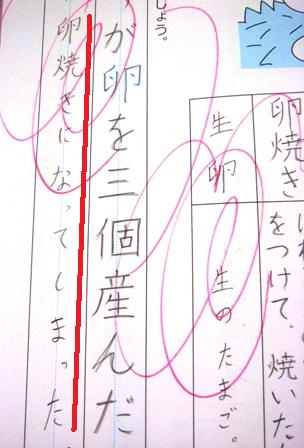 卵焼き
をつけて、焼いた
生卵
生のたまご。
しょう。
が卵を三個産んだ
卵焼きになってしまった。